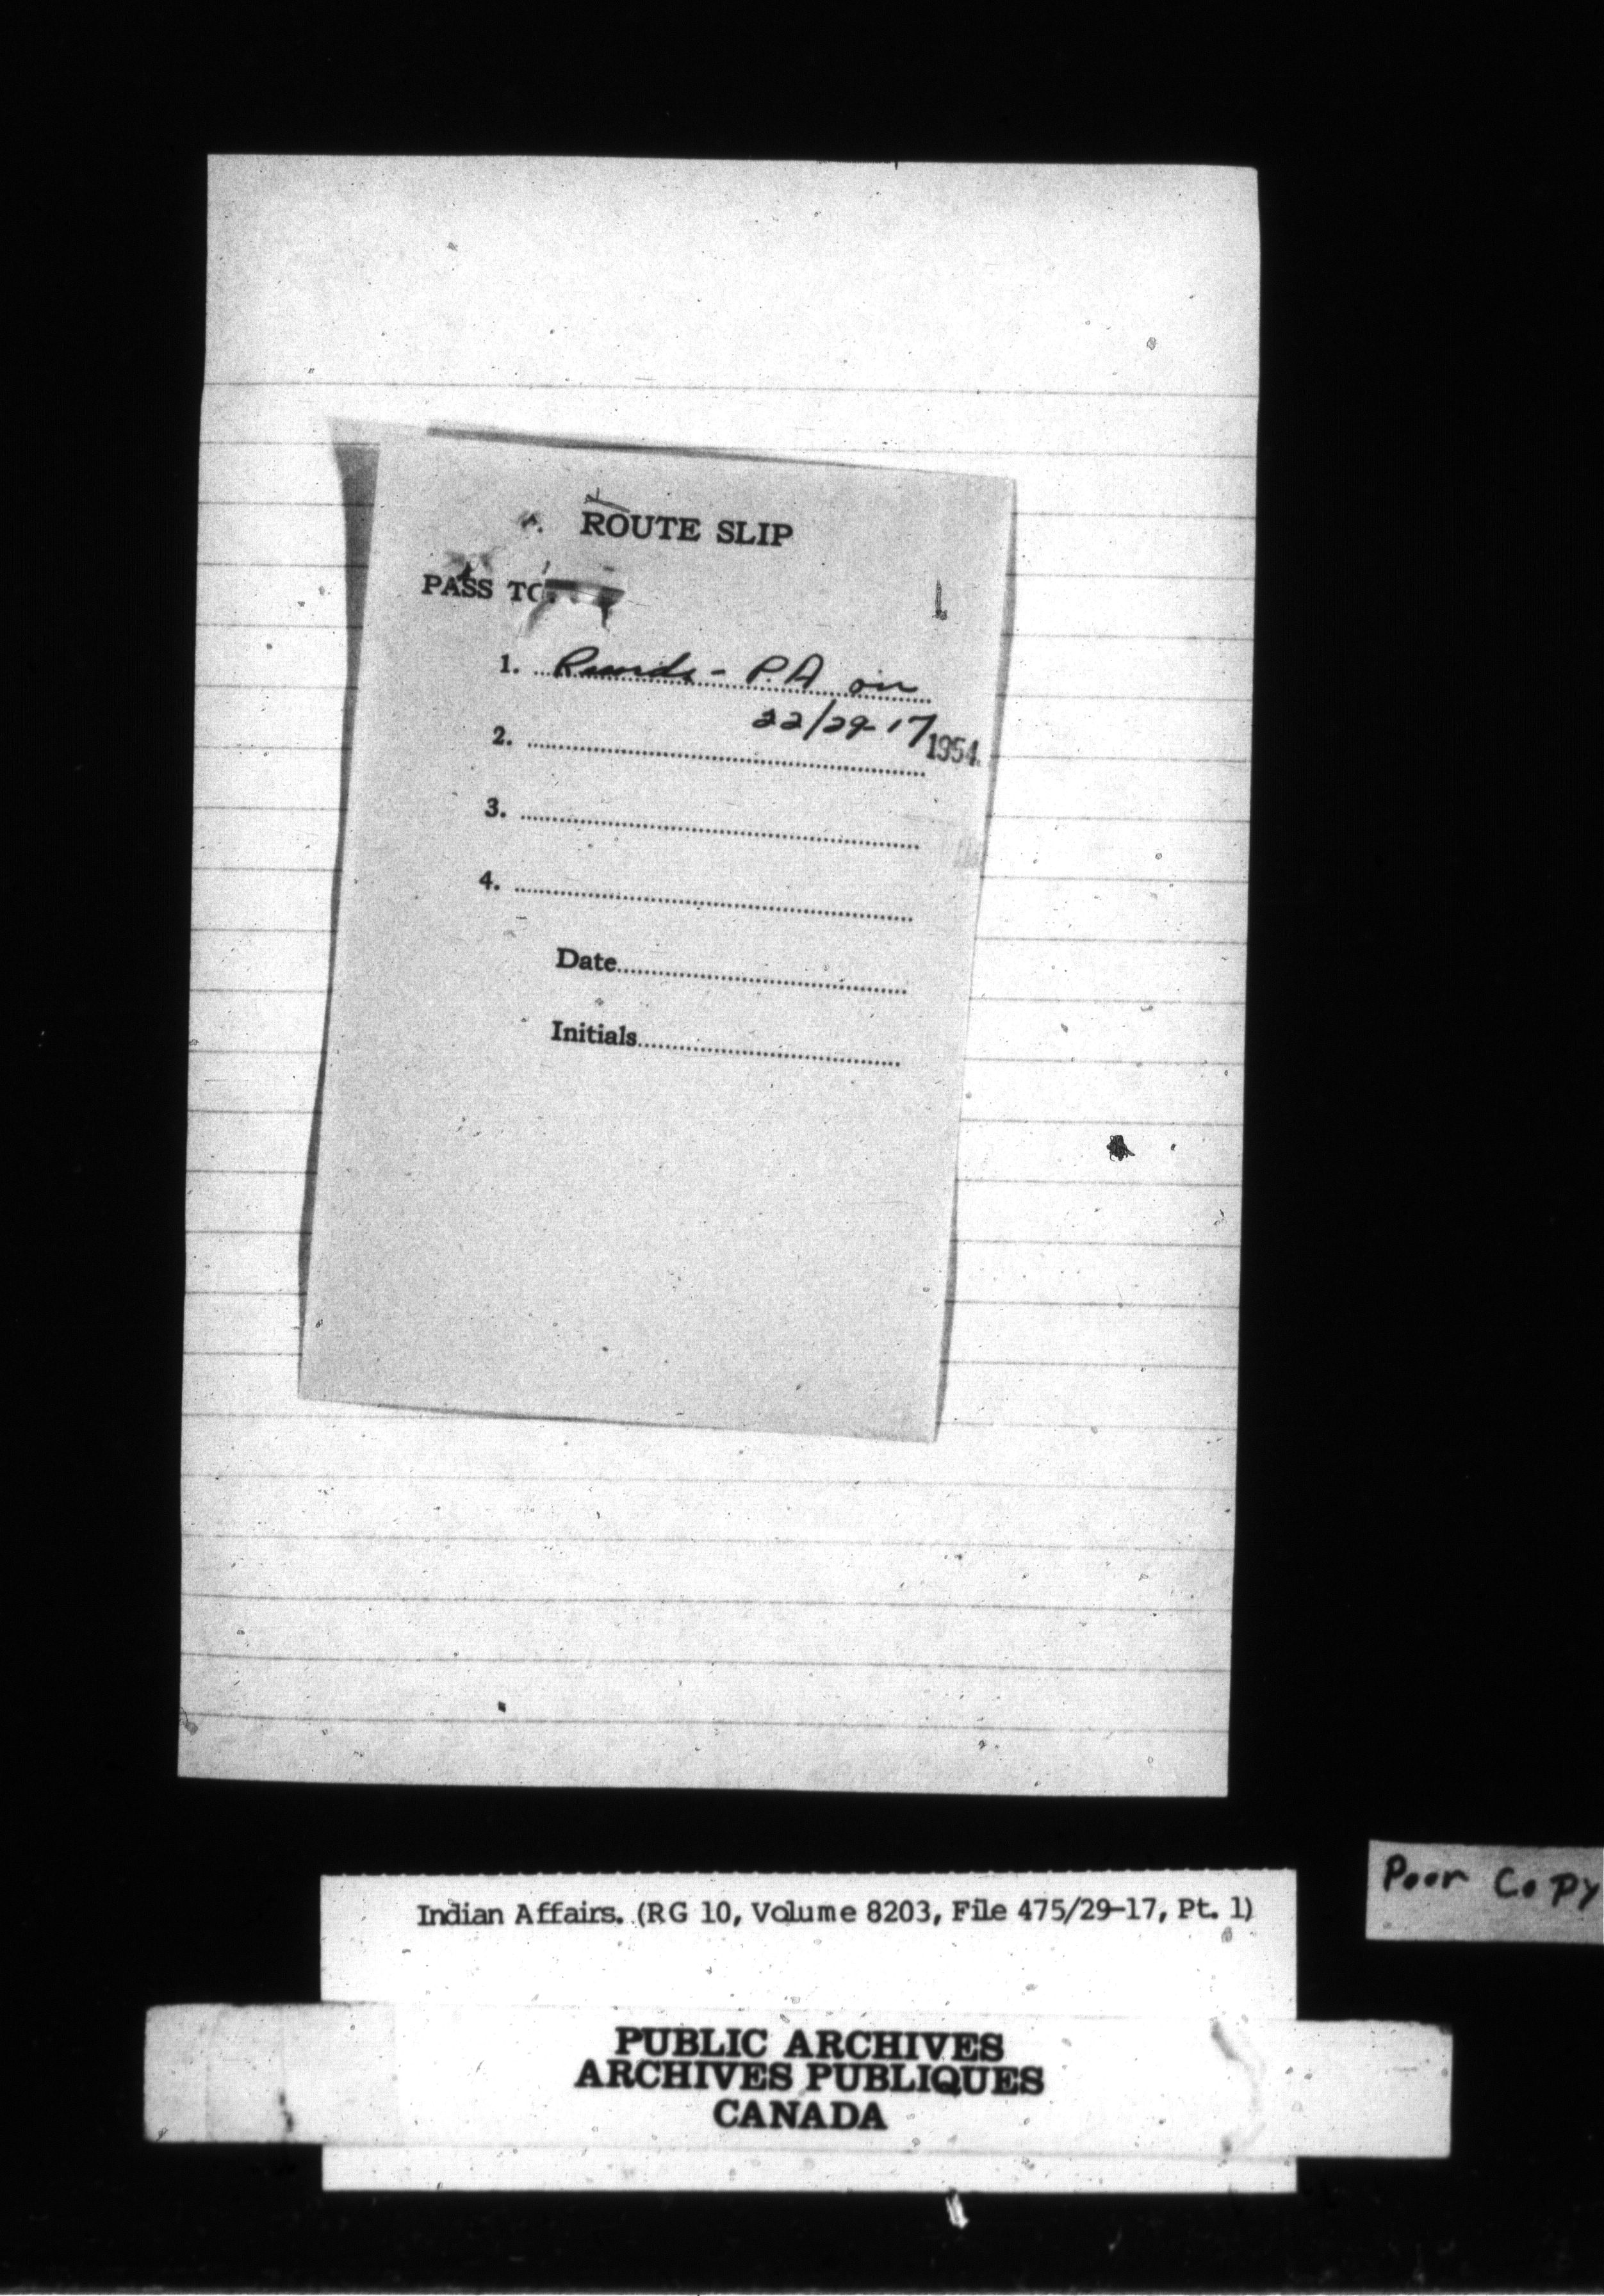 ROUTE SLIP
PASS TO:
1. Records - P.A on
22/29-17
2.
1954.
3.
4.
Date
Initials
Poor Copy
Indian Affairs. (RG 10, Volume 8203, File 475/29-17, Pt. 1)
PUBLIC ARCHIVES
ARCHIVES PUBLIQUES
CANADA